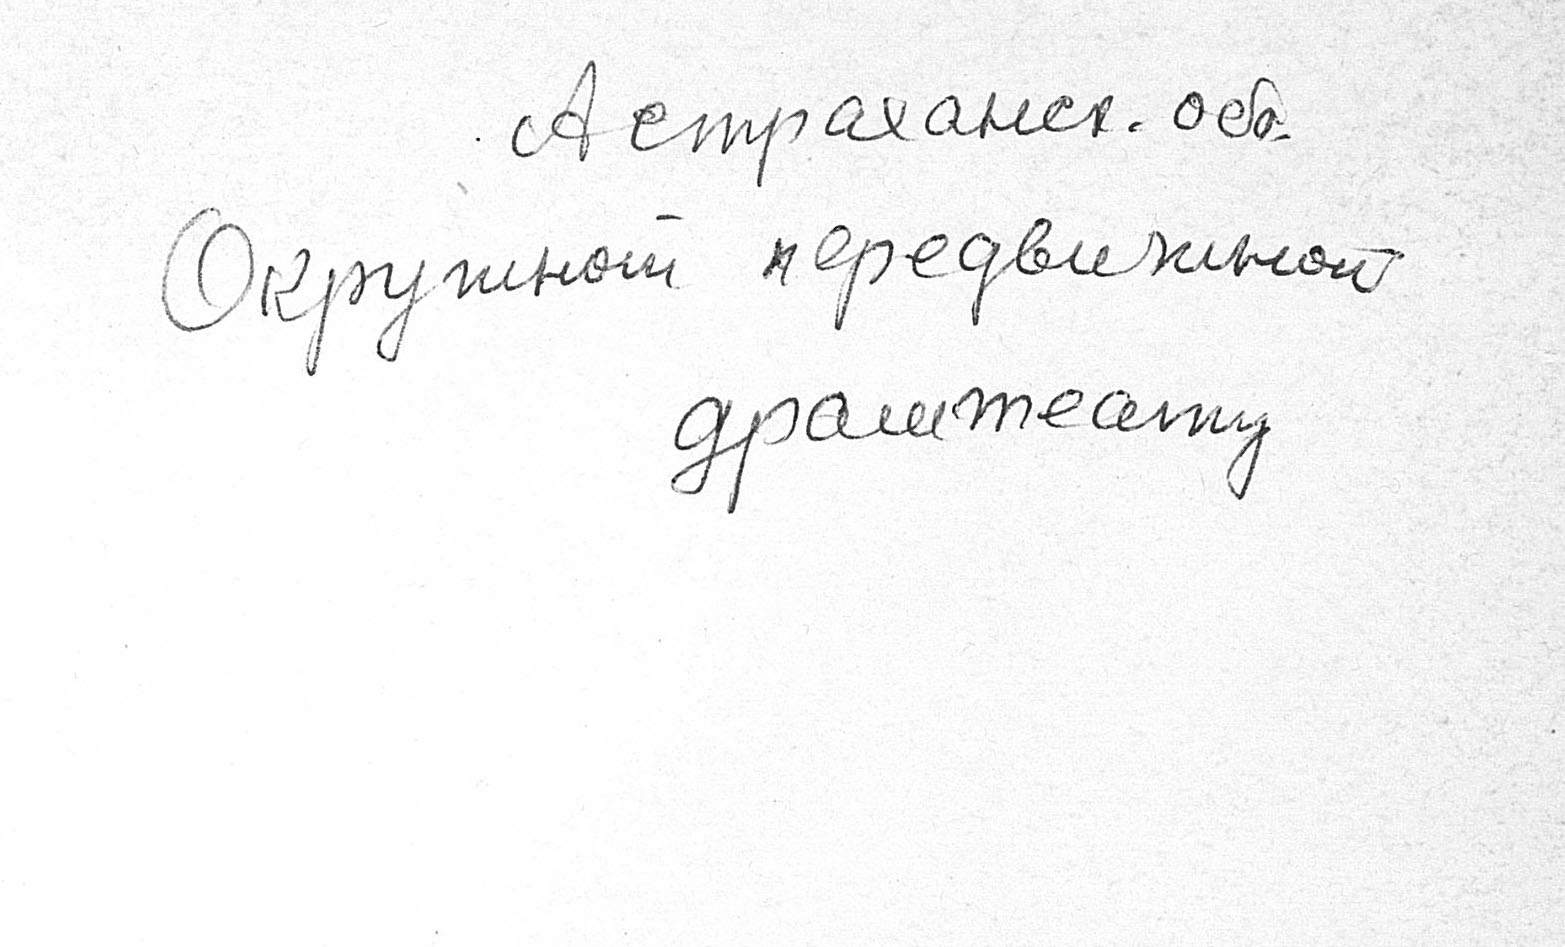 Астраханск. обл.
Окружной передвижной
драмтеатр